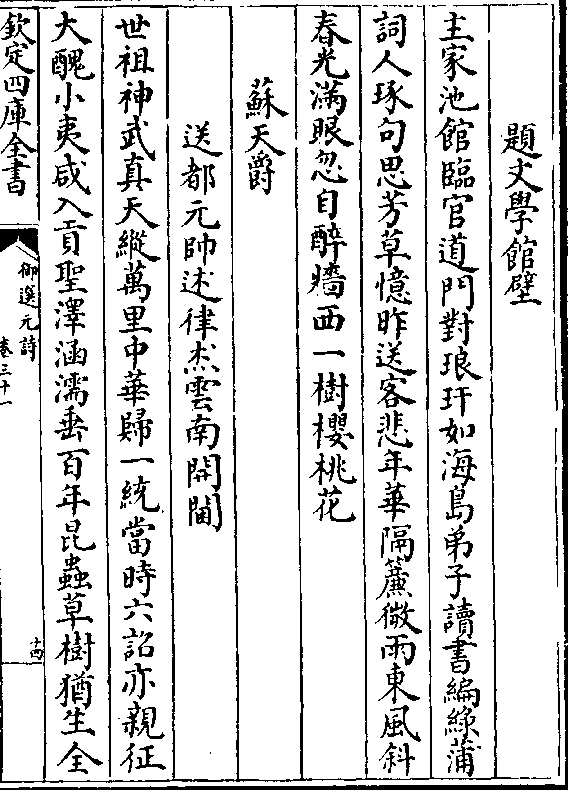 題文學館壁
主家池館臨官道門對琅玕如海島弟子讀書編綠蒲
詞人琢句思芳草憶昨送客悲年華隔簾微雨東風斜
春光滿眼忽自醉牆西一樹櫻桃花
蘇天爵
送都元帥述律杰雲南開閫
世祖神武真天縱萬里中華歸一統當時六詔亦親征
大醜小夷咸入貢聖澤涵濡垂百年昆蟲草樹猶生全
欽定四庫全書
御選元詩
卷三十一
十四